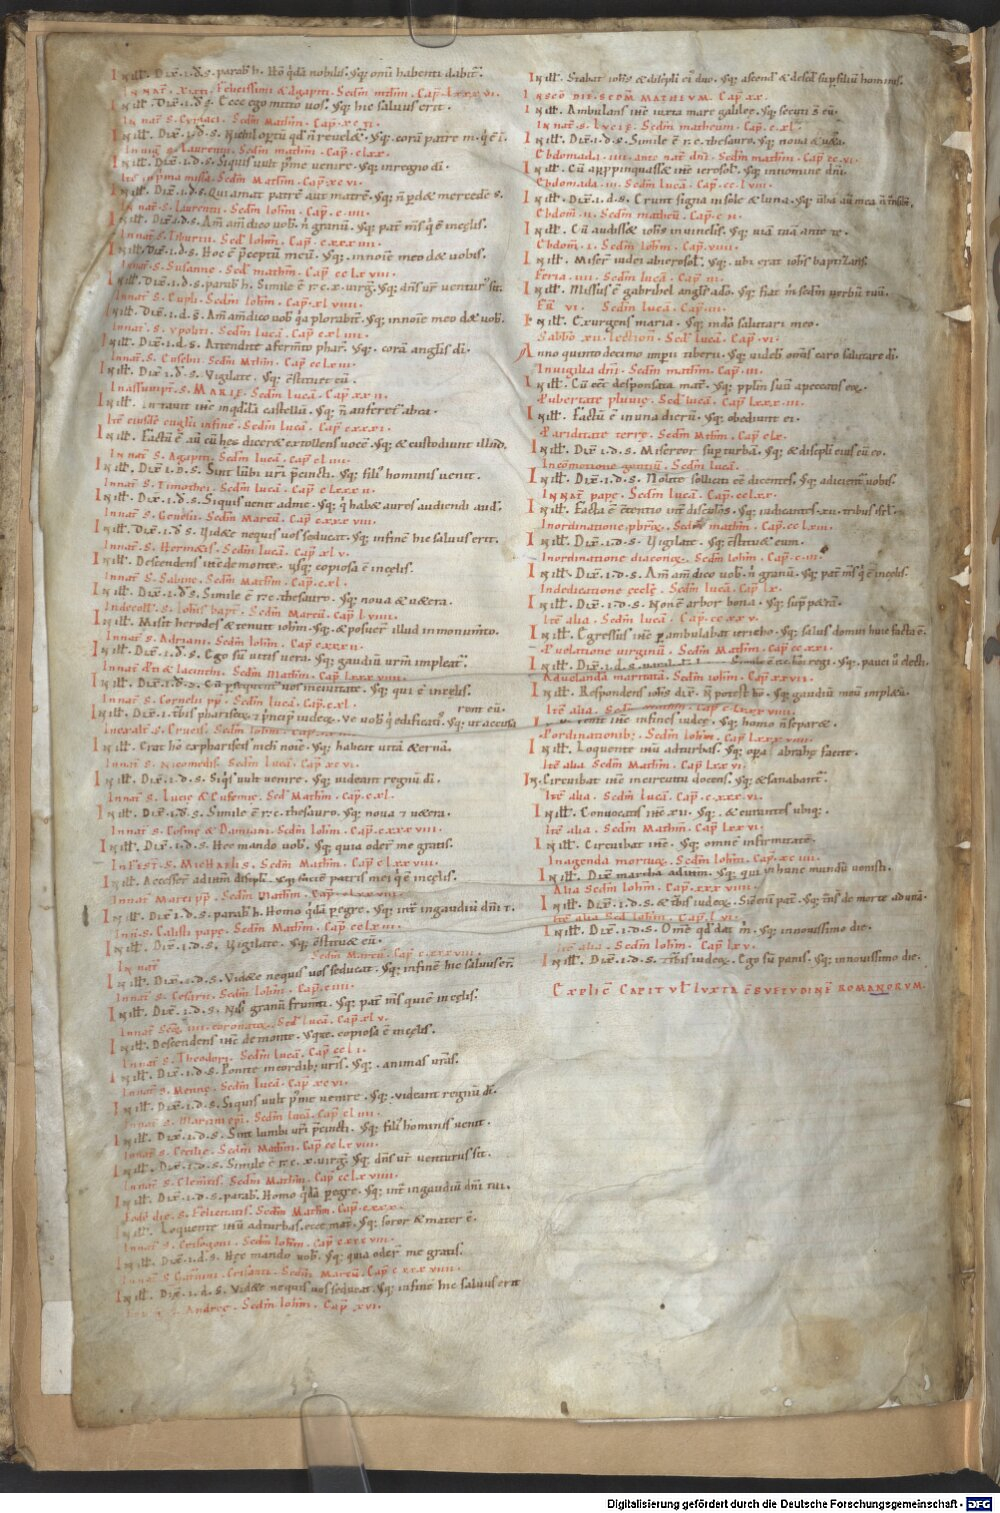 In illo. Dix. i. d. s. parab. h. Hō qdā nobilis. Usq; omni habenti dabit.
In nat. s. Xisti. Felicissimi & Agapiti. Sedm mthm. Cap. c. lxxxvi.
In ill. Dix. i. d. s. Ecce ego mitto vos. Usq; hic salvus erit.
In nat. s. Cyriaci. Sedm Mathm. Cap. xc vi.
In ill. Dix. i. d. s. Nichil optū qd n revelet. Usq; corā patre m. q c. i.
In vig. s. Laurenti. Sedm mathm. Cap. clxx.
In ill. Dix. i. d. s. Siquis vult p me venire. Usq; in regno di.
Itē in prima missa. Sedm Mathm. Cap. xc vi.
In ill. Dix. i. d. s. Qui amat patrē aut matrē. Usq; n pdet mercedē s.
In nat. s. Laurenti. Sedm Iohm. Cap. c. iiii.
In ill. Dix. i. d. s. Am am dico vob. n granū. Usq; pat ms q ē in celis.
In nat. s. Tiburti. Sed Iohm. Cap. c. xxx iiii.
In ill. Dix. i. d. s. Hoc ē pceptū meū. Usq; in noie meo det vobis.
In nat. s. Susanne. Sed mathm. Cap. cc lx viii.
In ill. Dix. i. d. s. parab. h. Simile ē r. c. x. virg. Usq; dns vr ventur sit.
In nat. s. Eupli. Sedm Iohm. Cap. xl viiii.
In ill. Dix. i. d. s. Am am dico vob q a plorabit. Usq; in noie meo det vob.
In nat. s. Ypoliti. Sedm lucā. Cap. c xl iiii.
In ill. Dix. i. d. s. Attendite a fermto phar. Usq; corā anglis di.
In nat. s. Eusebii. Sedm Mthm. Cap. cc lx iii.
In ill. Dix. i. d. s. Vigilate. Usq; cstituet eū.
In assumpt. s. MARIE. Sedm Lucā. Cap. c xx ii.
In ill. Intravit ihc in qddā castellū. Usq; n auferet ab ea.
Itē eiusdē euglii in fine. Sedm Lucā. Cap. c xxxi.
In ill. Factū ē aū cū hec diceret extollens vocē. Usq; & custodiunt illud.
In nat. s. Agapiti. Sedm Lucā. Cap. cl iiii.
In ill. Dix. i. d. s. Sint lūbi vri pcincti. Usq; fili hominis venit.
In nat. s. Timothei. Sedm Lucā. Cap. c lxxx ii.
In ill. Dix. i. d. s. Siquis venit ad me. Usq; q habet aures audiendi aud.
In nat. s. Genesii. Sedm Marcū. Cap. c xxx viii.
In ill. Dix. i. d. s. Videte nequis vos seducat. Usq; in finē hic salvus erit.
In nat. s. Hermetis. Sedm lucā. Cap. xl v.
In ill. Descendens ihc de monte. Usq; copiosa ē in celis.
In nat. s. Sabine. Sedm Mathm. Cap. c xl.
In ill. Dix. i. d. s. Simile ē r. c. thesauro. Usq; nova & vetera.
In decoll. s. Iohis bapt. Sedm Marcū. Cap. l viiii.
In ill. Misit herodes & tenuit iohm. Usq; & posuer illud in monumto.
In nat. s. Adriani. Sedm Iohm. Cap. c xxx ii.
In ill. Dix. i. d. s. Ego sū vitis vera. Usq; gaudiū vrm impleat.
In nat. s. Pti & Iacinthi. Sedm Mathm. Cap. lxxx viiii.
In ill. Dix. i. d. s. Cū psequent vos in civitate. Usq; qui ē in celis.
In nat. s. Cornelii pp. Sedm lucā. Cap. c xl. rent eū.
In ill. Dix. i. tbis phariseor & pncip iudeor. Ve vob q edificatis. Usq; ut accusa
In exalt. s. Crucis. Sedm Iohm. Cap.
In ill. Erat ho ex phariseis nich noie. Usq; habeat vitā etnā.
In nat. s. Nicomedis. Sedm Lucā. Cap. xc vi.
In ill. Dix. i. d. s. Siqs vult venire. Usq; videant regnū di.
In nat. s. Lucie & Eufemie. Sed Mathm. Cap. c xl.
In ill. Dix. i. d. s. Simile ē r. c. thesauro. Usq; nova 7 vetera.
In nat. s. Cosme & Damiani. Sedm Iohm. Cap. c xxx viiii.
In ill. Dix. i. d. s. Hec mando vob. Usq; quia oder me gratis.
In FEST. s. MICHAELIS. Sedm Mathm. Cap. c lxx viiii.
In ill. Accesser ad ihm discipli. Usq; faciē patris mei q ē in celis.
In nat. Marci pp. Sedm Mathm. Cap.
In ill. Dix. i. d. s. parab. h. Homo qdā pegre. Usq; int in gaudiū dni t.
In nt. s. Calisti pape. Sedm Mathm. Cap. cc lxiii.
In ill. Dix. i. d. s. Vigilate. Usq; cstituet eū.
In nat. Sedm Marcū. Cap. c xxx viii.
In ill. Dix. i. d. s. Videte nequis vos seducat. Usq; in finē hic salvus er.
In nat. s. Cesarii. Sedm Iohm. Cap. c iiii.
In ill. Dix. i. d. s. Nisi granū frumti. Usq; pat ms qui ē in celis.
In nat. Scōr. iiii. coronator. Sed lucā. Cap. xl v.
In ill. Descendens ihc de monte. Usq; copiosa ē in celis.
In nat. s. Theodori. Sedm Lucā. Cap. cc l i.
In ill. Dix. i. d. s. Ponite in cordib; vris. Usq; animas vras.
In nat. s. Menne. Sedm lucā. Cap. xc vi.
In ill. Dix. i. d. s. Siquis vult p me venire. Usq; videant regnū di.
In nat. s. Martini epi. Sedm Lucā. Cap. cl iiii.
In ill. Dix. i. d. s. Sint lumbi vri pcincti. Usq; fili hominis venit.
In nat. s. Cecilie. Sedm Mathm. Cap. cc lx viii.
In ill. Dix. i. d. s. Simile ē r. c. x. virg. Usq; dns vr venturus sit.
In nat. s. Clemtis. Sedm Mathm. Cap. cc lx viiii.
In ill. Dix. i. d. s. parab. Homo qdā pegre. Usq; int in gaudiū dni tui.
Eodē die. s. Felicitatis. Sedm Mathm. Cap. c xxx.
In ill. Loquente ihu ad turbas. ecce mat. Usq; soror & mater ē.
In nat. s. Crisogoni. Sedm Iohm. Cap. c xxx viiii.
In ill. Dix. i. d. s. Hec mando vob. Usq; quia oder me gratis.
In nat. s. Saturnini. Crisanti. Sedm Marcū. Cap. c xxx viiii.
In ill. Dix. i. d. s. Videte nequis vos seducat. Usq; in fine hic salvus erit
Andree. Sedm Iohm. Cap. xvi.
In ill. Stabat iohs & discipli ei duo. Usq; ascend & descd sup filiū hominis.
In eod die. SEDM MATHEUM. Cap. xx.
In ill. Ambulans ihc iuxta mare galilee. Usq; secuti s eū.
In nat. s. Lucie. Sedm matheum. Cap. c. xl.
In ill. Dix. i. d. s. Simile ē r. c. thesauro. Usq; nova & vetra.
Ebdomada. iiii. ante nat. dni. Sedm mathm. Cap. cc. vi.
In ill. Cū appinquasset ihc ierosol. Usq; in nomine dni.
Ebdomada. iii. Sedm lucā. Cap. cc. l viii.
In ill. Dix. i. d. s. Erunt signa in sole & luna. Usq; vba aū mea n tnsibt.
Ebdom. ii. Sedm matheū. Cap. c ii.
In ill. Cū audisset iohs in vinclis. Usq; viā tuā ante te.
Ebdom. i. Sedm Iohm. Cap. viiii.
In ill. Miser iudei ab ierosol. Usq; ubi erat iohs baptizans.
Feria. iiii. Sedm lucā. Cap. iii.
In ill. Missus ē gabrihel angls a do. Usq; fiat m sedm verbū tuū.
Fr. vi. Sedm lucā. Cap. iiii.
In ill. Exurgens maria. Usq; in do salutari meo.
Sabbō xii. lection. Sed lucā. Cap. vi.
Anno quinto decimo impii tiberii. Usq; videbit omis caro salutare di.
In vigilia dni. Sedm mathm. Cap. iii.
In ill. Cū eēt desponsata mat. Usq; pplm suū a peccatis eor.
P ubertate pluvie. Sed lucā. Cap. lxxx iii.
In ill. Factū ē in una dierū. Usq; obediunt ei.
P ariditate terre. Sedm Mthm. Cap. clx.
In ill. Dix. i. d. s. Misereor sup turbā. Usq; & discipli eius cū eo.
In cōmotione gentiū. Sedm lucā.
In ill. Dix. i. d. s. Nolite solliciti eē dicentes. Usq; adicient vobis.
IN NAT. pape. Sedm Lucā. Cap. cc lxx.
In ill. Facta ē ctentio int discipulos. Usq; iudicantes xii. tribus isrl.
In ordinatione pbror. Sedm mathm. Cap. cc lxiii.
In ill. Dix. i. d. s. Vigilate. Usq; cstituet eum.
In ordinatione diaconor. Sedm Iohm. Cap. c iii.
In ill. Dix. i. d. s. Am am dico vob. n granū. Usq; pat ms q ē in celis.
In dedicatione eccle. Sedm lucā. Cap. lx.
In ill. Dix. i. d. s. Non ē arbor bona. Usq; sup petrā.
Itē alia. Sedm Lucā. Cap. cc xx v.
In ill. Egressus ihc pambulabat iericho. Usq; salus domui huic facta ē.
P velatione virginū. Sedm Mathm. Cap. cc xxi.
In ill. Dix. i. d. s. Simile ē r. c. hoi regi. Usq; pauci v electi.
Ad velanda maritatā. Sedm iohm. Cap. xx vii.
In ill. Respondens iohs dix. N potest ho. Usq; gaudiū meū impletū.
Itē alia. Sedm mathm. Cap. c lxxx viii.
venit ihc in fines iudee. Usq; homo n separet.
P ordinationib; Sedm Iohm. Cap. lxxx viiii.
In ill. Loquente ihu ad turbas. Usq; opa abrahe facite.
Itē alia Sedm Mathm. Cap. lxx vi.
In. Circuibat ihc in circuitu docens. Usq; & sanabant.
Itē alia. Sedm Lucā. Cap. c xxx vi.
In ill. Convocatis ihc xii. Usq; & curantes ubiq;.
Itē alia. Sedm Mathm. Cap. lxx vi.
In ill. Circuibat ihc. Usq; omnē infirmitatē.
In agenda mortuor. Sedm Iohm. Cap. xc iiii.
In ill. Dix martha ad ihm. Usq; qui in hunc mundū venisti.
Alia Sedm Iohm. Cap. xxx viiii.
In ill. Dix. i. d. s. & tbis iudeor. Sic eni pat. Usq; tns de morte ad vitā.
Itē alia Sed Iohm. Cap. l vi.
In ill. Dix. i. d. s. Omē qd dat m. Usq; in novissimo die.
Itē alia. Sedm Iohm. Cap. lx v.
In ill. Dix. i. d. s. Tbis iudeor. Ego sū panis. Usq; in novissimo die.
EXPLIC CAPITUL IUXTA CSUETUDINE ROMANORUM.
Digitalisierung gefördert durch die Deutsche Forschungsgemeinschaft - DFG